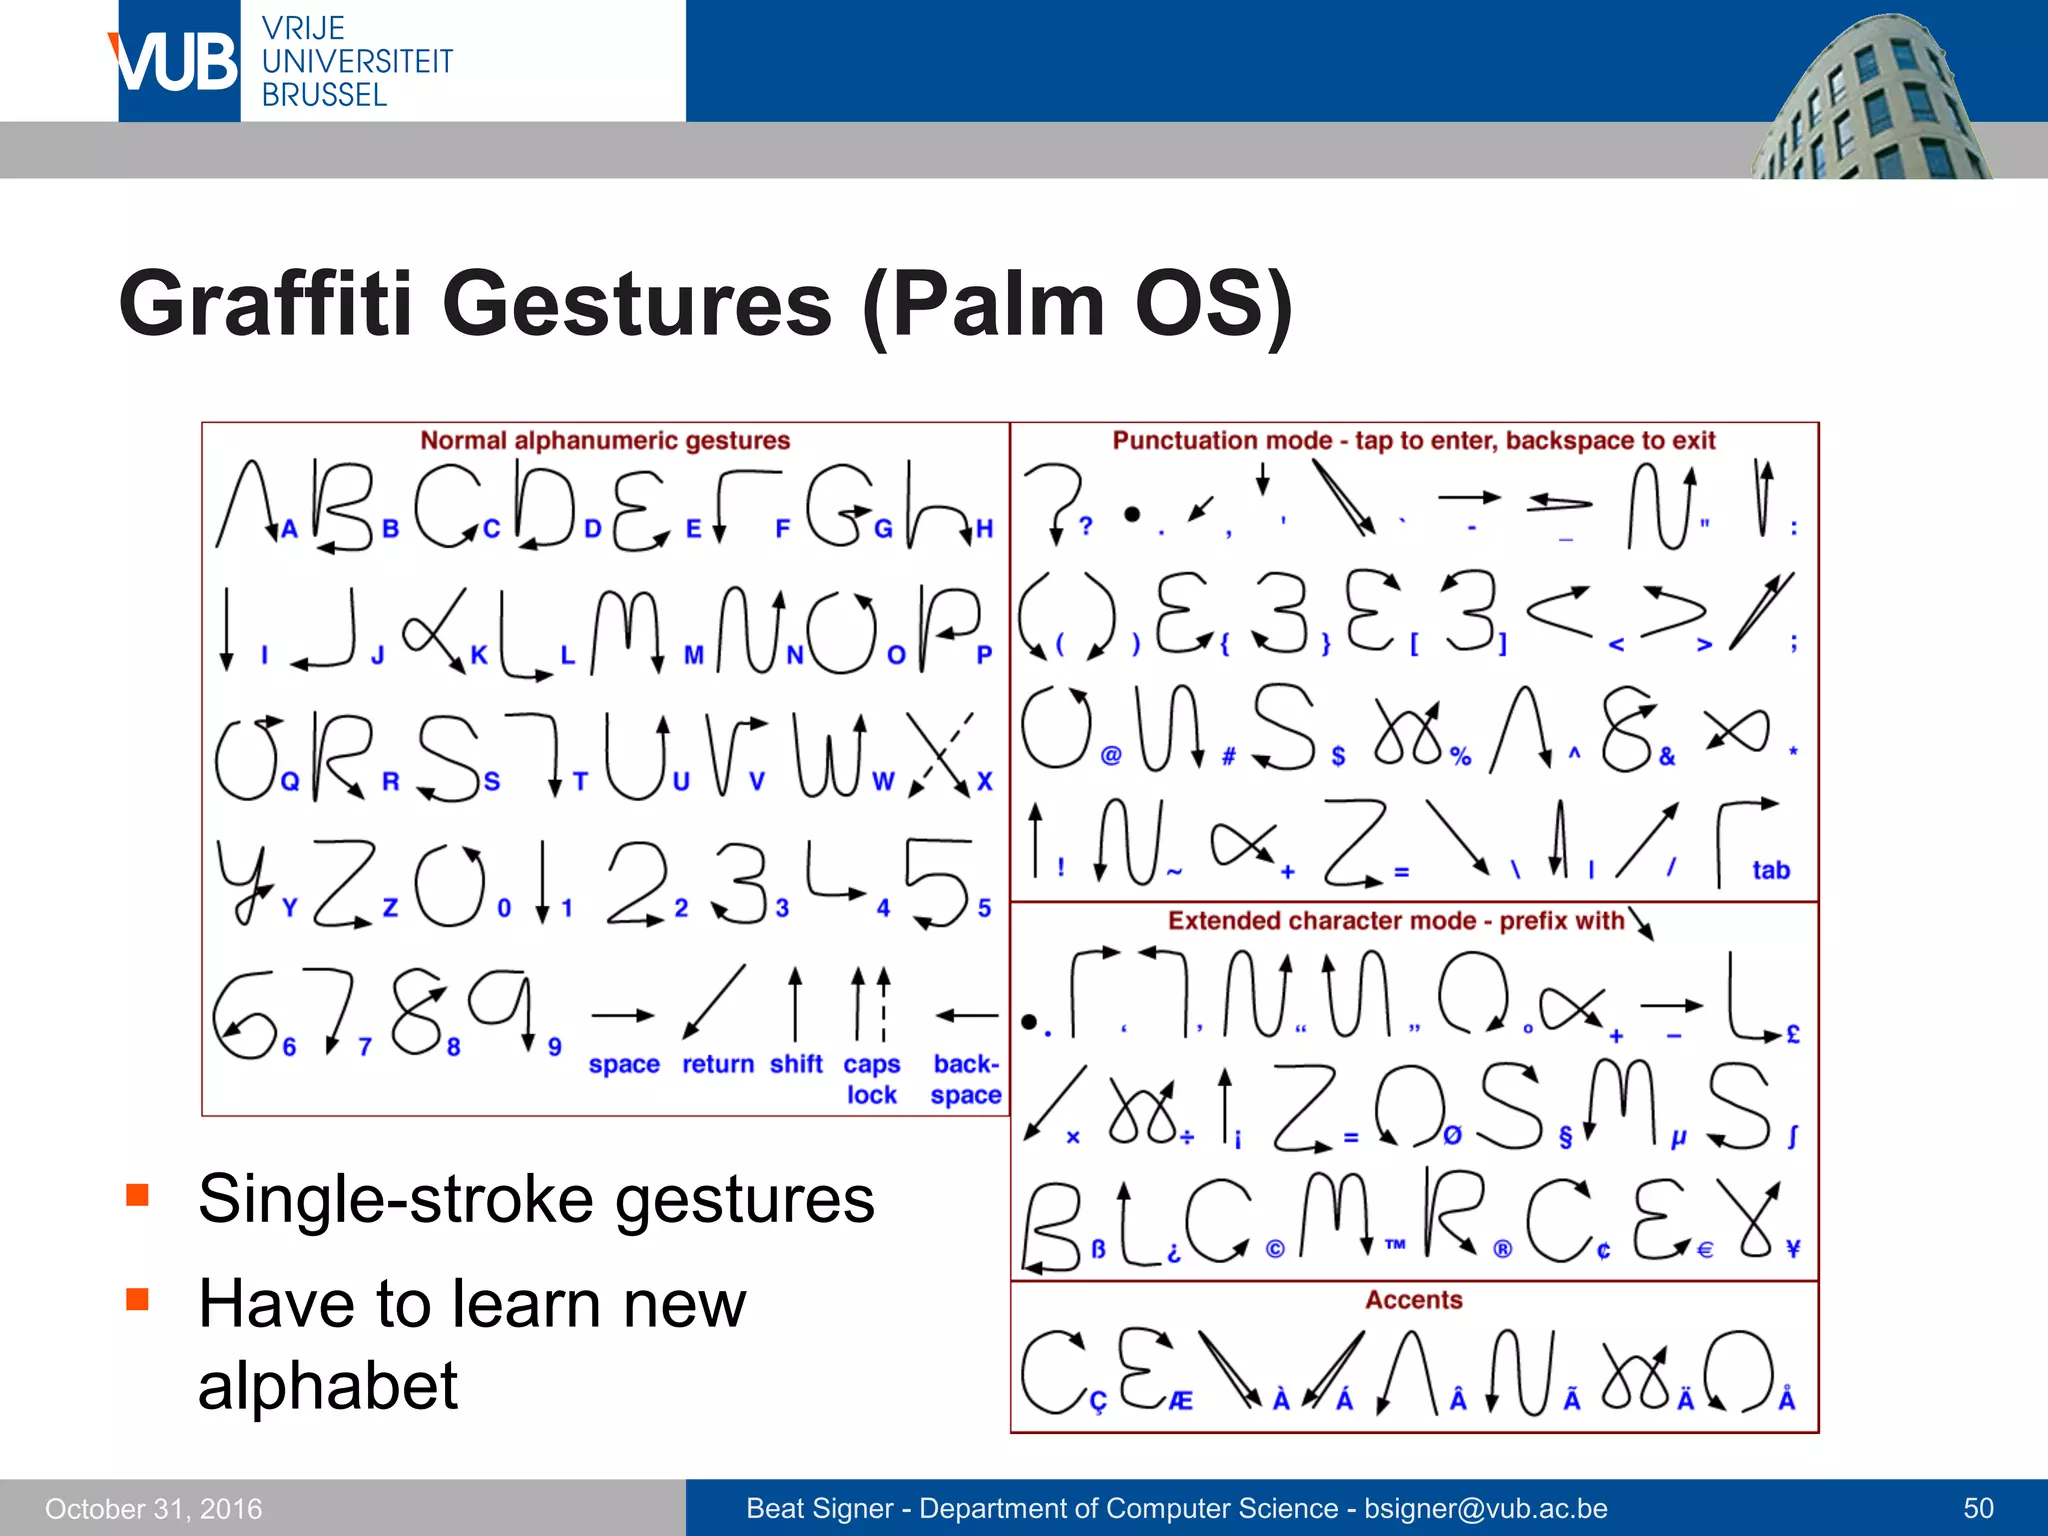 VUB
VRIJE
UNIVERSITEIT
BRUSSEL
Graffiti Gestures (Palm OS)
Normal alphanumeric gestures
A B C D E F G H
I J K L M N O P
Q R S T U V W X
Y Z 0 1 2 3 4 5
6 7 8 9 space return shift caps lock back-space
Punctuation mode - tap to enter, backspace to exit
? . , ' ` - _ " :
( ) { } [ ] < > ;
@ # $ % ^ & *
! ~ + = \ | / tab
Extended character mode - prefix with
• ‘ ’ “ ” º + – £
× ÷ ¡ = Ø § µ ∫
ß ¿ © ™ ® ¢ € ¥
Accents
Ç Æ À Á Â Ã Ä Å
Single-stroke gestures
Have to learn new
alphabet
October 31, 2016
Beat Signer - Department of Computer Science - bsigner@vub.ac.be
50